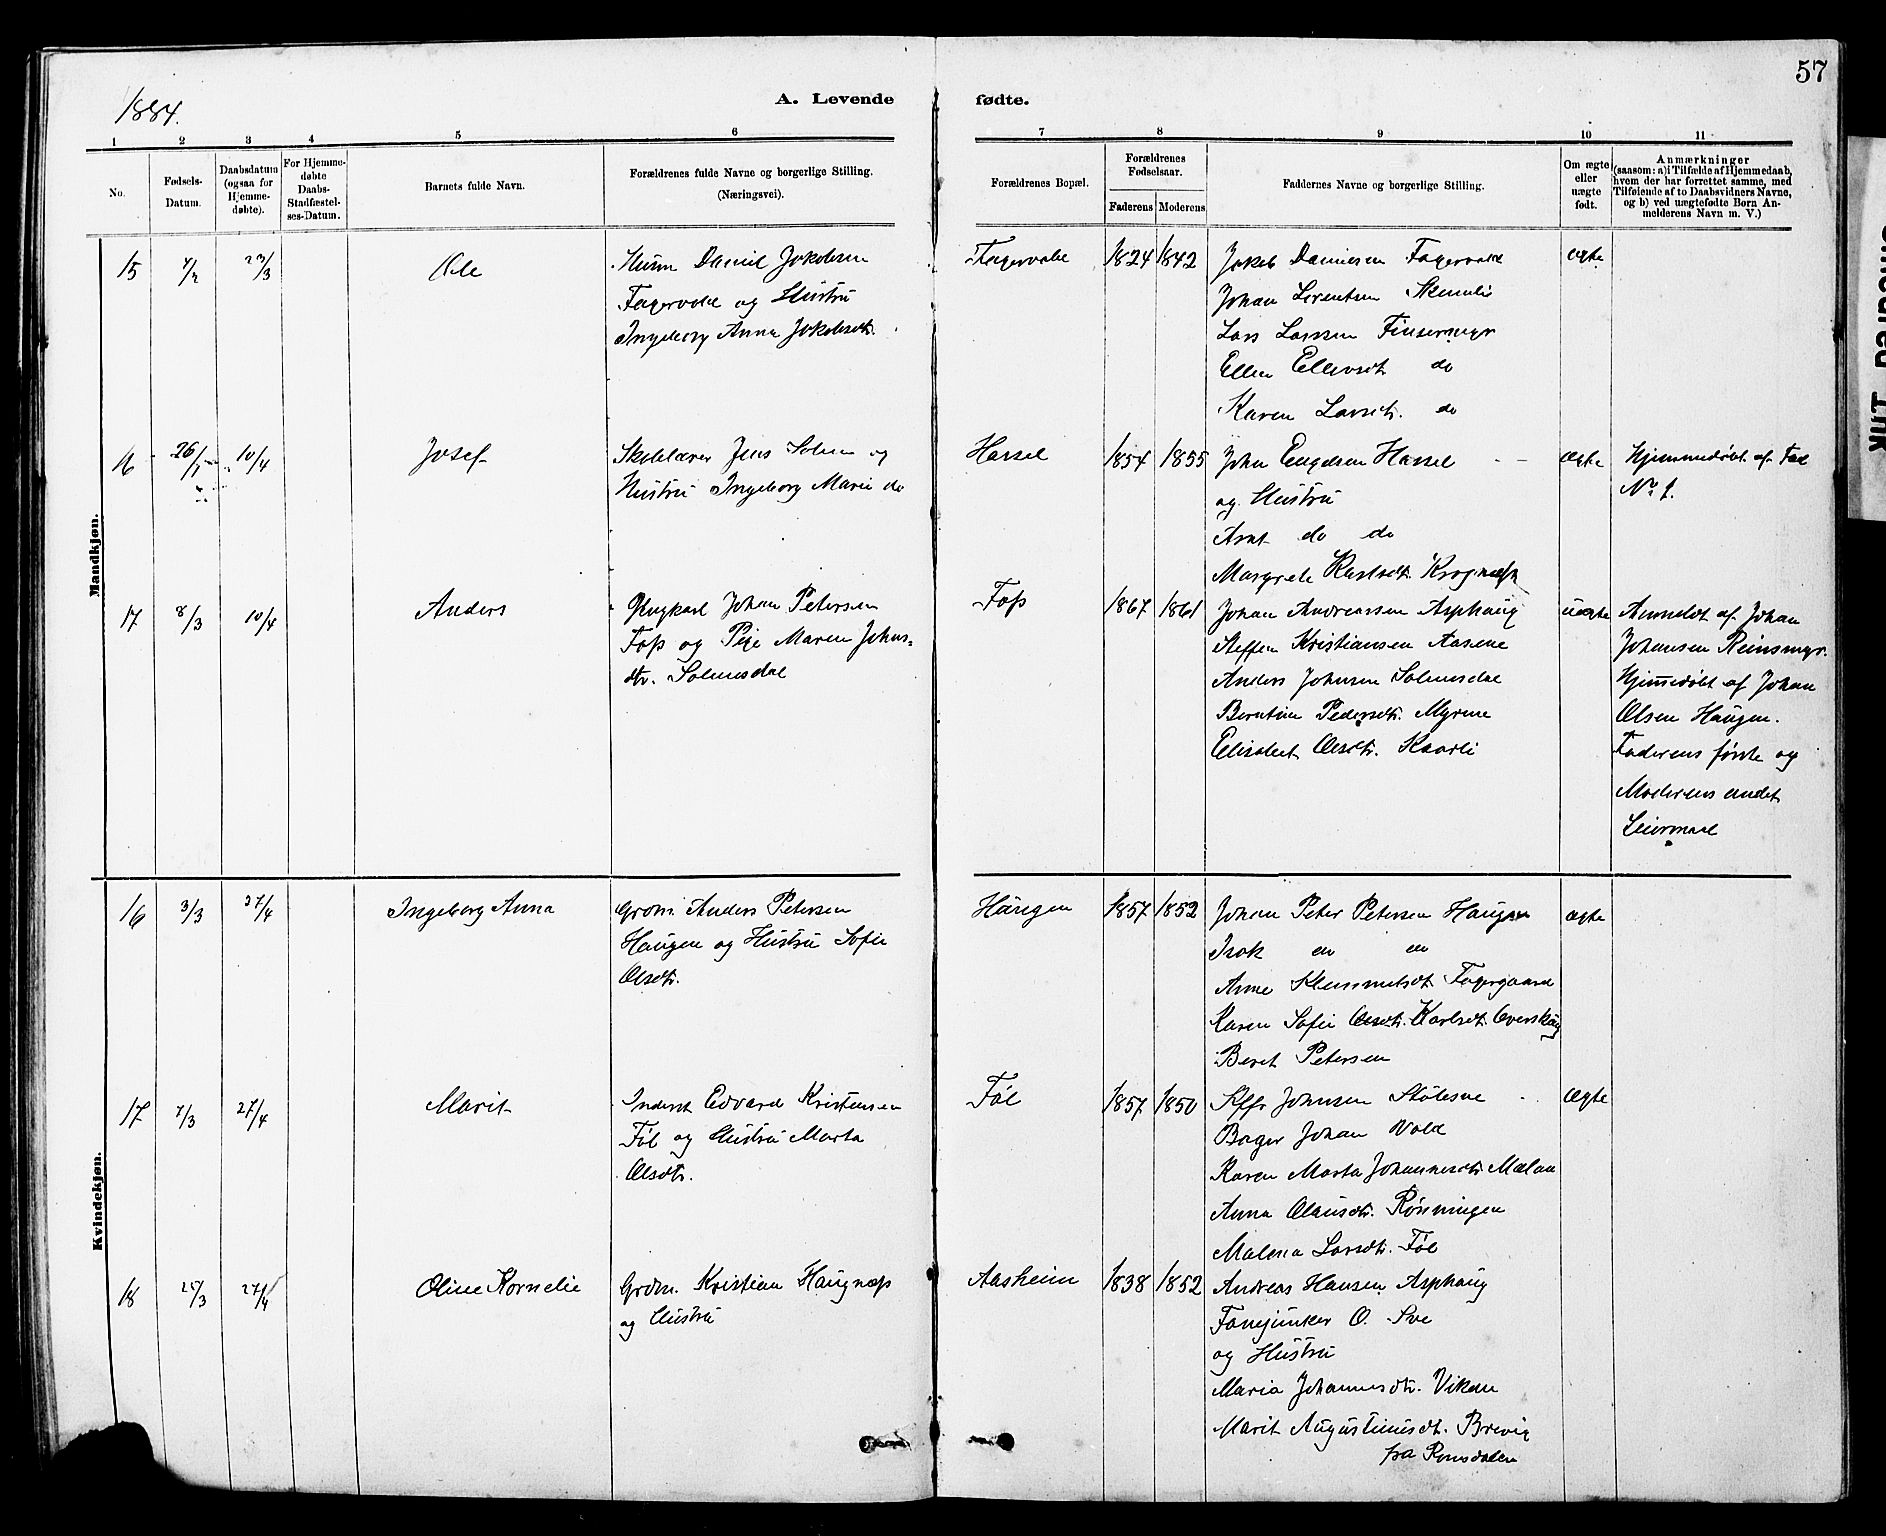 57
1884.
A. Levende fødte.
1 2 3 4 5 6 7 8 9 10 11
No.
Fødsels-
Datum.
Daabsdatum
(ogsaa for
Hjemme-
døbte).
For Hjemme-
døbte
Daabs-
Stadfæstel-
ses-Datum.
Barnets fulde Navn.
Forældrenes fulde Navne og borgerlige Stilling.
(Næringsvei).
Forældrenes Bopæl.
Forældrenes
Fødselsaar.
Faderens Moderens
Faddernes Navne og borgerlige Stilling.
Om ægte
eller
uægte
født.
Anmærkninger
(saasom: a) i Tilfælde af Hjemmedaab,
hvem der har forrettet samme, med
Tilføiende af to Daabsvidners Navne,
og b) ved uægtefødte Børn An-
melderens Navn m. V.)
Mandkjøn.
15
23/3
Ole
Husm Daniel Jakobsen
Fagervold og Hustru
Ingeborg Anna Jakobsdt.
Fagervold
1824 1842
Jakob Danielsen Fagervold
Johan Lorentsen
Lars Larsen Finsermyr
Ellen Ellevsdt do
Karen Larsdt. do
ægte
16
26/1
10/4
Josef
Skolelærer Jens Solem og
Hustru Ingeborg Marie do
Hassel
1854 1855
John Engelsen Hassel
og Hustru
Arnt do do
Margrete Karlsdt. Krognæss
ægte
Hjemmedøbt af Fad
No 1.
17
8/3
10/4
Anders
Ungkarl Johan Petersen
Foss og Pige Maren Johns-
dtr. Solemsdal
Foss
1867 1861
Johan Andreassen Asphaug
Steffen Kristiansen Aasene
Anders Johnsen Solemsdal
Berntine Pedersdt. Myrene
Elisabet Olsdt. Kaarli
uægte
Anmeldt af Johan
Johansen Reinsmyr.
Hjemmedøbt af Johan
Olsen Haugen.
Faderens første og
Moderens andet
Leiermaal
Kvindekjøn.
16
3/3
27/4
Ingeborg Anna
Grdm. Anders Petersen
Haugen og Hustru Sofie
Olsdt.
Haugen
1857 1852
Johan Peter Petersen Haugen
Isak do do
Anne Klemmetsdt. Fagergaard
Karen Sofie Olsdt. Karlsdt. Overskaug
Beret Petersen
ægte
17
7/3
27/4
Marit
Inderst Edvard Kristensen
Føl og Hustru Marta
Olsdt.
Føl
1857 1850
Kffr Johnsen Stølesve
Bager Johan Vold
Karen Marta Johannesdt. Mælan
Anna Olausdt. Rønningen
Malena Larsdt. Føl
ægte
18
25/3
27/4
Oline Kornelie
Grdm. Kristian Haugnæss
og Hustru
Aasheim
1838 1852
Andreas Hansen Asphaug
Fanejunker O. Sve
og Hustru
Maria Johannesdt. Vikan
Marit Augustinusdt. Brevig
fra Romsdalen